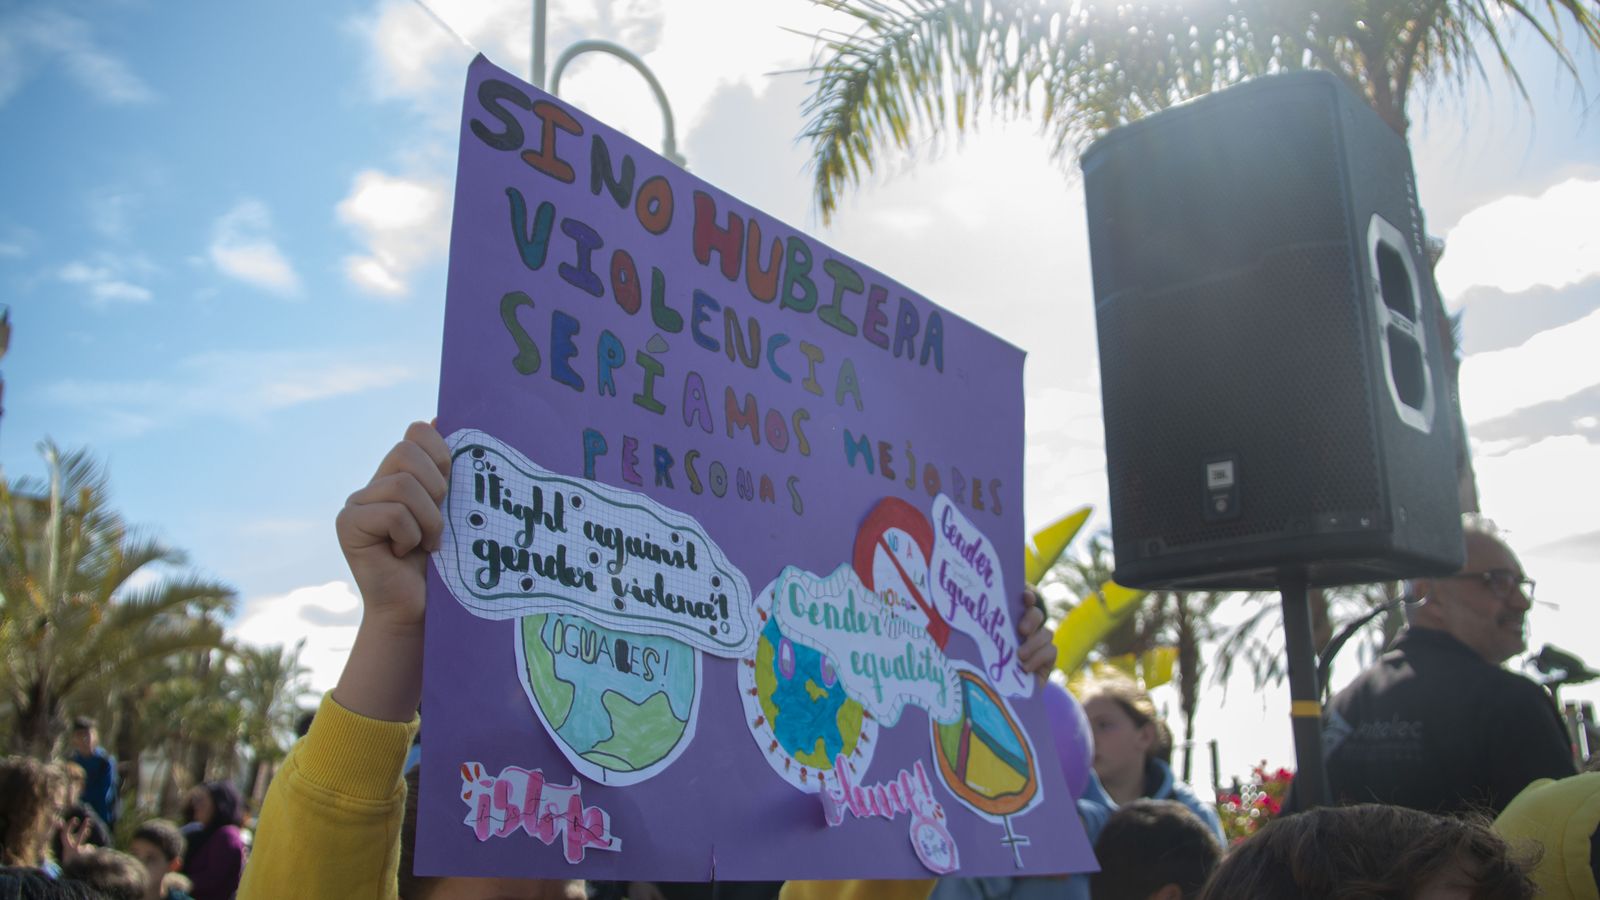 SI NO HUBIERA
VIOLENCIA
SERÍAMOS MEJORES
PERSONAS
¡Fight against
gender violence!
¡IGUALES!
NO A
LA
Gender
Equality
Gender
equality
¡Stop
JBL
intelec